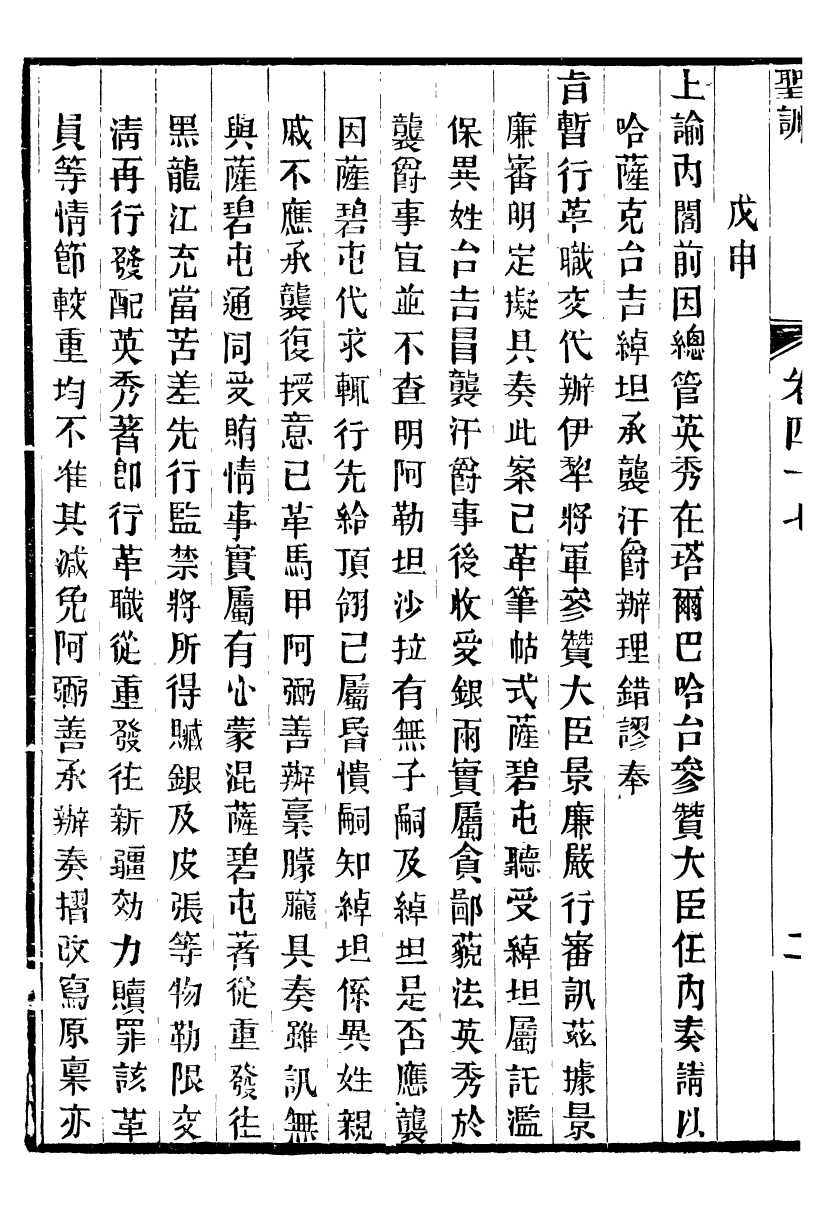 聖訓
卷四十七
二
戊申
上諭內閣前因總管英秀在塔爾巴哈台參贊大臣任內奏請以
哈薩克台吉綽坦承襲汗爵辦理錯謬奉
旨暫行革職交代辦伊犂將軍參贊大臣景廉嚴行審訊茲據景
廉審明定擬具奏此案已革筆帖式薩碧屯聽受綽坦屬託濫
保異姓台吉冒襲汗爵事後收受銀兩實屬貪鄙藐法英秀於
襲爵事宜並不查明阿勒坦沙拉有無子嗣及綽坦是否應襲
因薩碧屯代求輒行先給頂翎已屬昏憒嗣知綽坦係異姓親
戚不應承襲復授意已革馬甲阿彌善辦稾朦朧具奏雖訊無
與薩碧屯通同受賄情事實屬有心蒙混薩碧屯著從重發往
黑龍江充當苦差先行監禁將所得贓銀及皮張等物勒限交
淸再行發配英秀著卽行革職從重發往新疆効力贖罪該革
員等情節較重均不准其減免阿彌善承辦奏摺改寫原稟亦